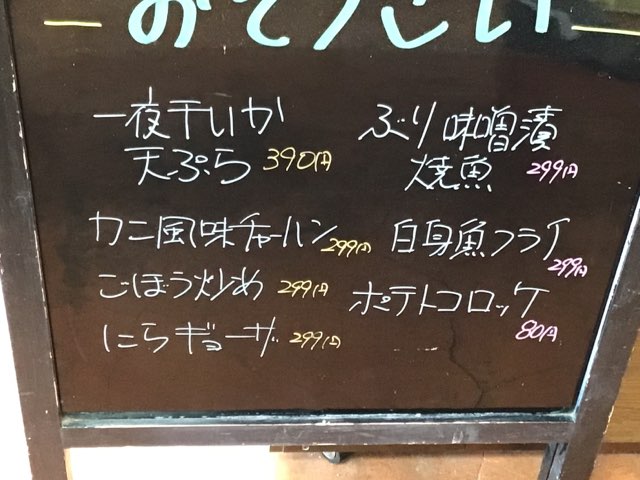 おそうざい
一夜干いか
天ぷら 390円
カニ風味チャーハン 299円
ごぼう炒め 299円
にらギョーザ 299円
ぶり味噌漬
焼魚 299円
白身魚フライ
299円
ポテトコロッケ
80円